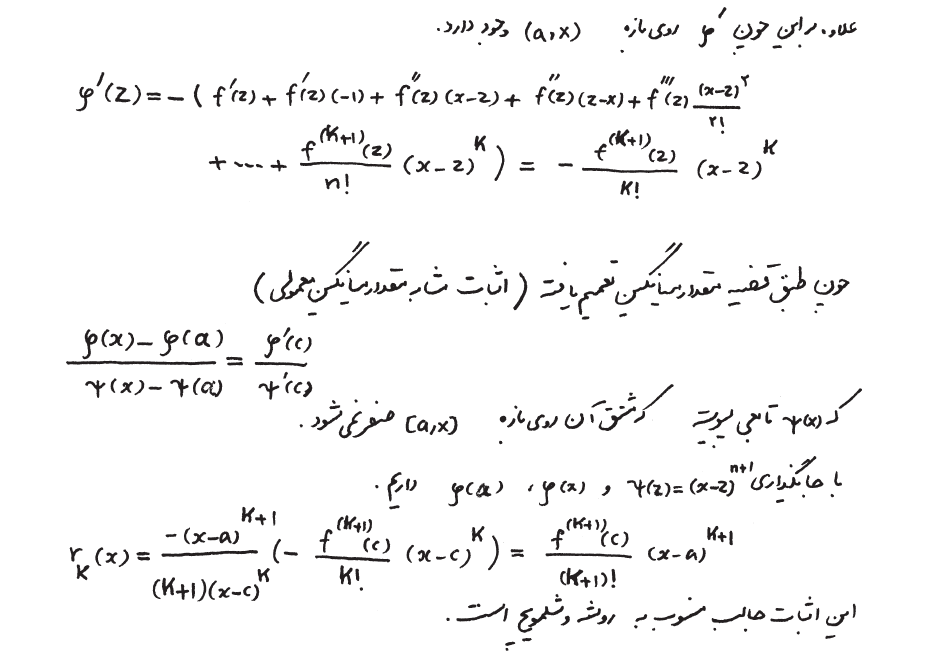 علاوه براین چون φ′ روی بازه (a,x) وجود دارد.
φ′(z) = −( f′(z) + f′(z)(−1) + f″(z)(x−z) + f″(z)(z−x) + f‴(z) (x−z)^۲/۲!
+ ... + f^(K+1)(z)/n! (x−z)^K ) = − f^(K+1)(z)/K! (x−z)^K
چون طبق قضیه مقدار میانگین تعمیم یافته (اثبات مشابه مقدار میانگین معمولی)
(φ(x) − φ(a))/(ψ(x) − ψ(a)) = φ′(c)/ψ′(c)
که ψ(x) تابعی پیوسته که مشتق آن روی بازه [a,x] صفر نمی شود.
با جاگذاری ψ(z)=(x−z)^n+1 و φ(x) ، φ(a) داریم.
r_K(x) = −(x−a)^K+1/((K+1)(x−c)^K) (− f^(K+1)(c)/K! (x−c)^K) = f^(K+1)(c)/(K+1)! (x−a)^K+1
این اثبات جالب منسوب به روشه و شلمویچ است.